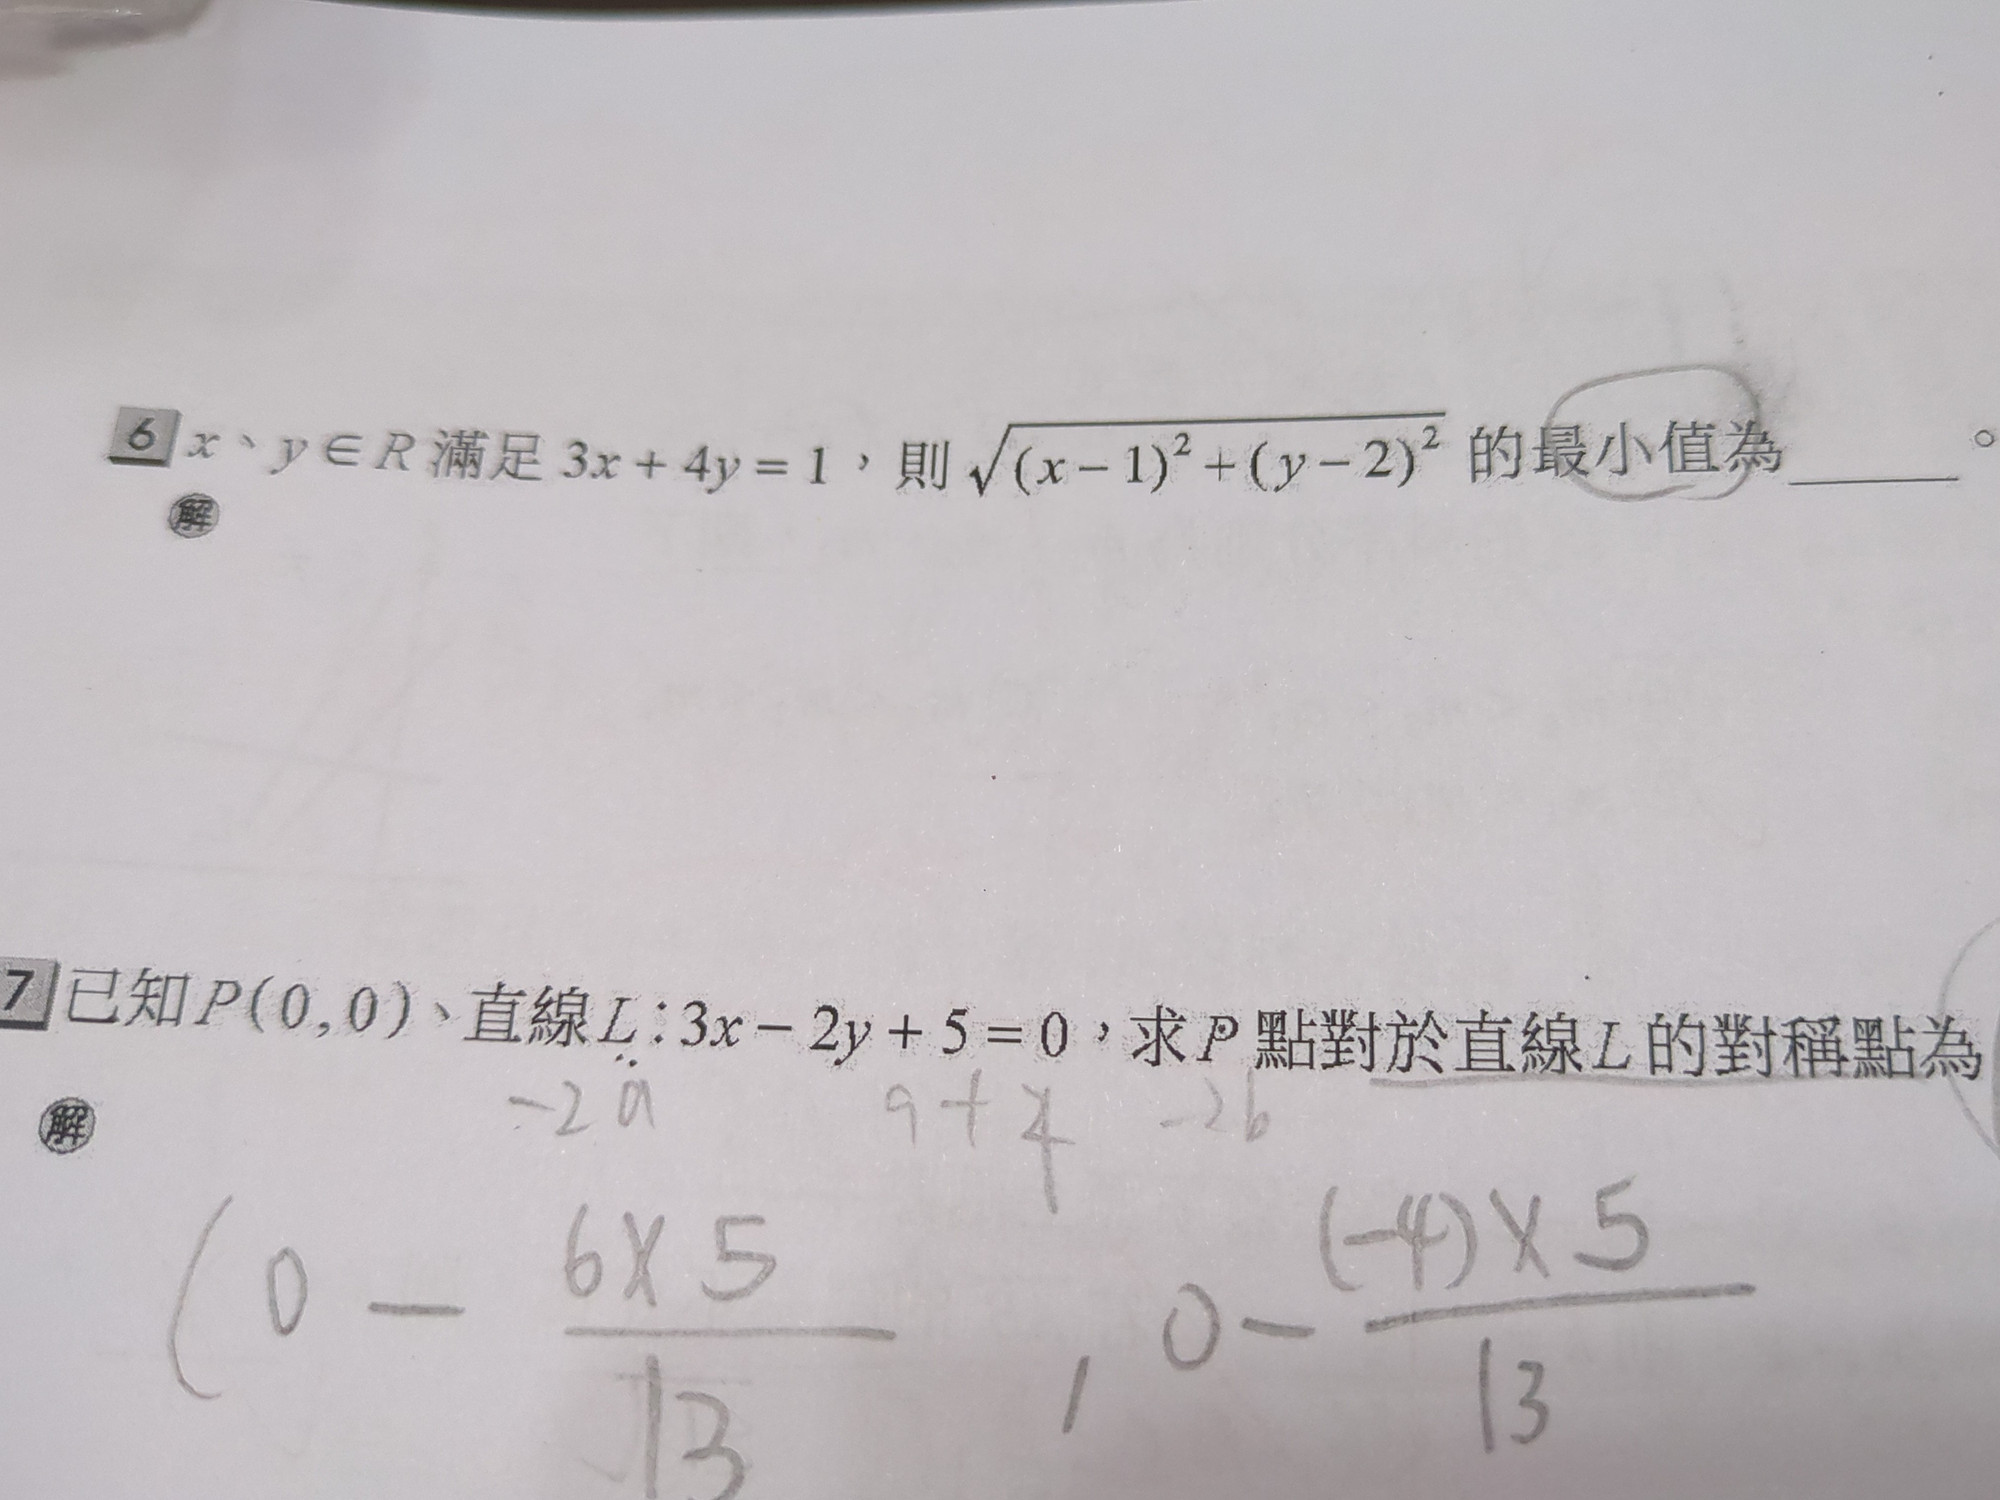 6 x、y∈R 滿足 3x+4y=1，則 √(x-1)²+(y-2)² 的最小值為______。
解
7 已知P(0,0)、直線L:3x-2y+5=0，求P點對於直線L的對稱點為
-2a 9+4 -2b
解
(0 - 6×5/13 , 0 - (-4)×5/13